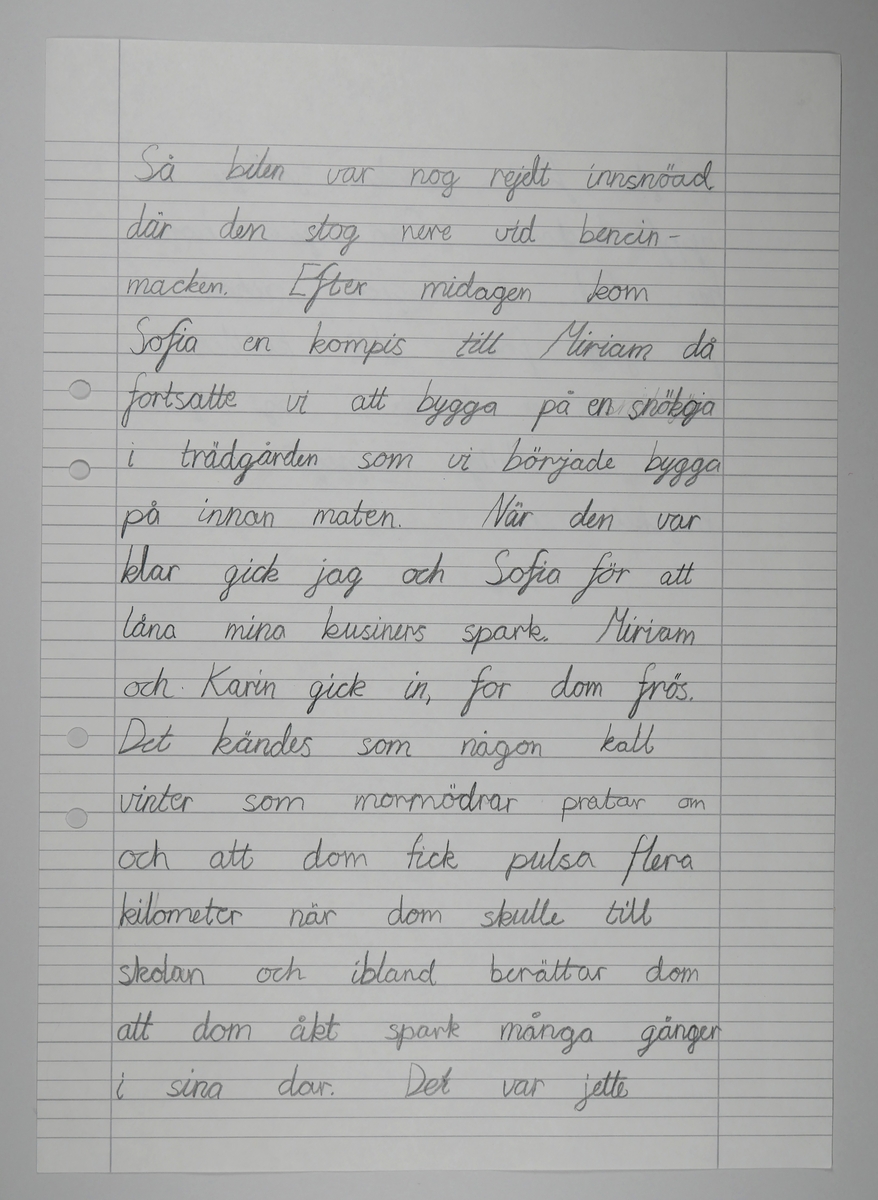 Så bilen var nog rejelt innsnöad
där den stog nere vid bencin-
macken. Efter midagen kom
Sofia en kompis till Miriam då
fortsatte vi att bygga på en snökoja
i trädgården som vi började bygga
på innan maten. När den var
klar gick jag och Sofia för att
låna mina kusiners spark. Miriam
och Karin gick in, for dom frös.
Det kändes som någon kall
vinter som mormödrar pratar om
och att dom fick pulsa flera
kilometer när dom skulle till
skolan och ibland berättar dom
att dom åkt spark många gånger
i sina dar. Det var jette